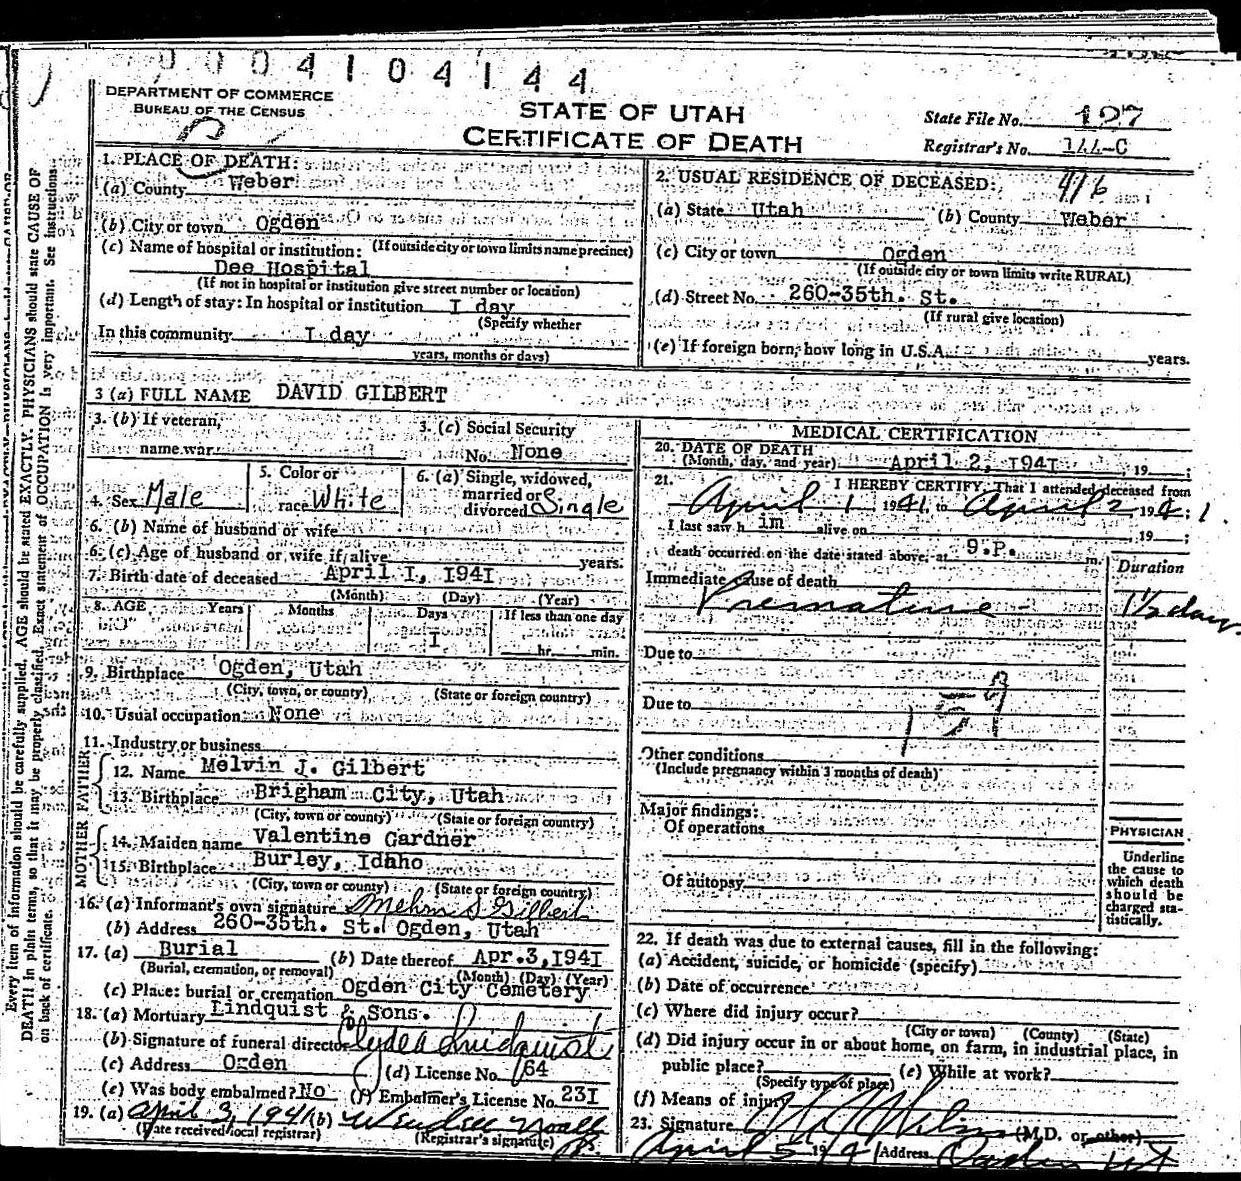 0004104144
DEPARTMENT OF COMMERCE
BUREAU OF THE CENSUS
STATE OF UTAH
CERTIFICATE OF DEATH
State File No. 127
Registrar's No. 144-C
1. PLACE OF DEATH:
(a) County Weber
(b) City or town Ogden
(If outside city or town limits name precinct)
(c) Name of hospital or institution:
Dee Hospital
(If not in hospital or institution give street number or location)
(d) Length of stay: In hospital or institution I day
(Specify whether
In this community I day
years, months or days)
2. USUAL RESIDENCE OF DECEASED: 416
(a) State Utah (b) County Weber
(c) City or town Ogden
(If outside city or town limits write RURAL)
(d) Street No. 260-35th. St.
(If rural give location)
(e) If foreign born, how long in U.S.A. years.
3 (a) FULL NAME DAVID GILBERT
3. (b) If veteran,
name war
3. (c) Social Security
No. None
4. Sex Male
5. Color or
race White
6. (a) Single, widowed,
married or
divorced Single
6. (b) Name of husband or wife
6. (c) Age of husband or wife if alive years.
7. Birth date of deceased April I, I94I
(Month) (Day) (Year)
8. AGE Years Months Days If less than one day
I. hr. min.
9. Birthplace Ogden, Utah
(City, town, or county) (State or foreign country)
10. Usual occupation None
11. Industry or business
FATHER
12. Name Melvin J. Gilbert
13. Birthplace Brigham City, Utah
(City, town or county) (State or foreign country)
MOTHER
14. Maiden name Valentine Gardner
15. Birthplace Burley, Idaho
(City, town or county) (State or foreign country)
16. (a) Informant's own signature Gilbert
(b) Address 260-35th. St. Ogden, Utah
17. (a) Burial (b) Date thereof Apr.3,I94I
(Burial, cremation, or removal) (Month) (Day) (Year)
(c) Place: burial or cremation Ogden City Cemetery
18. (a) Mortuary Lindquist & Sons.
(b) Signature of funeral director Clyde A Lindquist
(c) Address Ogden (d) License No. 164
(e) Was body embalmed? No (f) Embalmer's License No. 23I
19. (a) April 3, 1941 (b)
(Date received local registrar) (Registrar's signature)
MEDICAL CERTIFICATION
20. DATE OF DEATH
(Month, day, and year) April 2, I94I, 19 ;
21. I HEREBY CERTIFY, That I attended deceased from
April 1, 1941, to April 2, 1941
I last saw h im alive on , 19 ;
death occurred on the date stated above, at 9.P. m.
Duration
Immediate cause of death
Premature 1½ days
Due to
Due to
159
Other conditions
(Include pregnancy within 3 months of death)
Major findings:
Of operations
Of autopsy
PHYSICIAN
Underline
the cause to
which death
should be
charged sta-
tistically.
22. If death was due to external causes, fill in the following:
(a) Accident, suicide, or homicide (specify)
(b) Date of occurrence
(c) Where did injury occur?
(City or town) (County) (State)
(d) Did injury occur in or about home, on farm, in industrial place, in
public place? (e) While at work?
(Specify type of place)
(f) Means of injury
23. Signature (M.D. or other)
April 5 1941 Address Ogden Ut
Every item of information should be carefully supplied. AGE should be stated EXACTLY. PHYSICIANS should state CAUSE OF
DEATH in plain terms, so that it may be properly classified. Exact statement of OCCUPATION is very important. See instructions
on back of certificate.